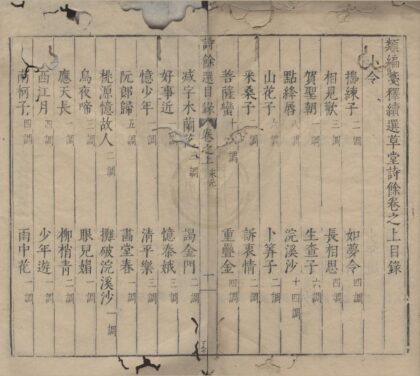 類編箋釋續選草堂詩餘卷之上目錄
小令
搗練子 二調 如夢令 四調
相見歡 三調 長相思 四調
賀聖朝 一調 生查子 六調
點絳唇 調 浣溪沙 十四調
山花子 調 卜筭子 二調
采桑子 調 訴衷情 二調
菩薩蠻 十調 重疊金 四調
詩餘選目錄 卷之上
減字木蘭花 三調 謁金門 二調
好事近 二調 憶秦娥 三調
憶少年 調 清平樂 三調
阮郎歸 五調 畫堂春 一調
桃源憶故人 二調 攤破浣溪沙 一調
烏夜啼 一調 眼兒媚 一調
應天長 一調 柳梢青 二調
西江月 四調 少年遊 一調
南柯子 四調 雨中花 一調